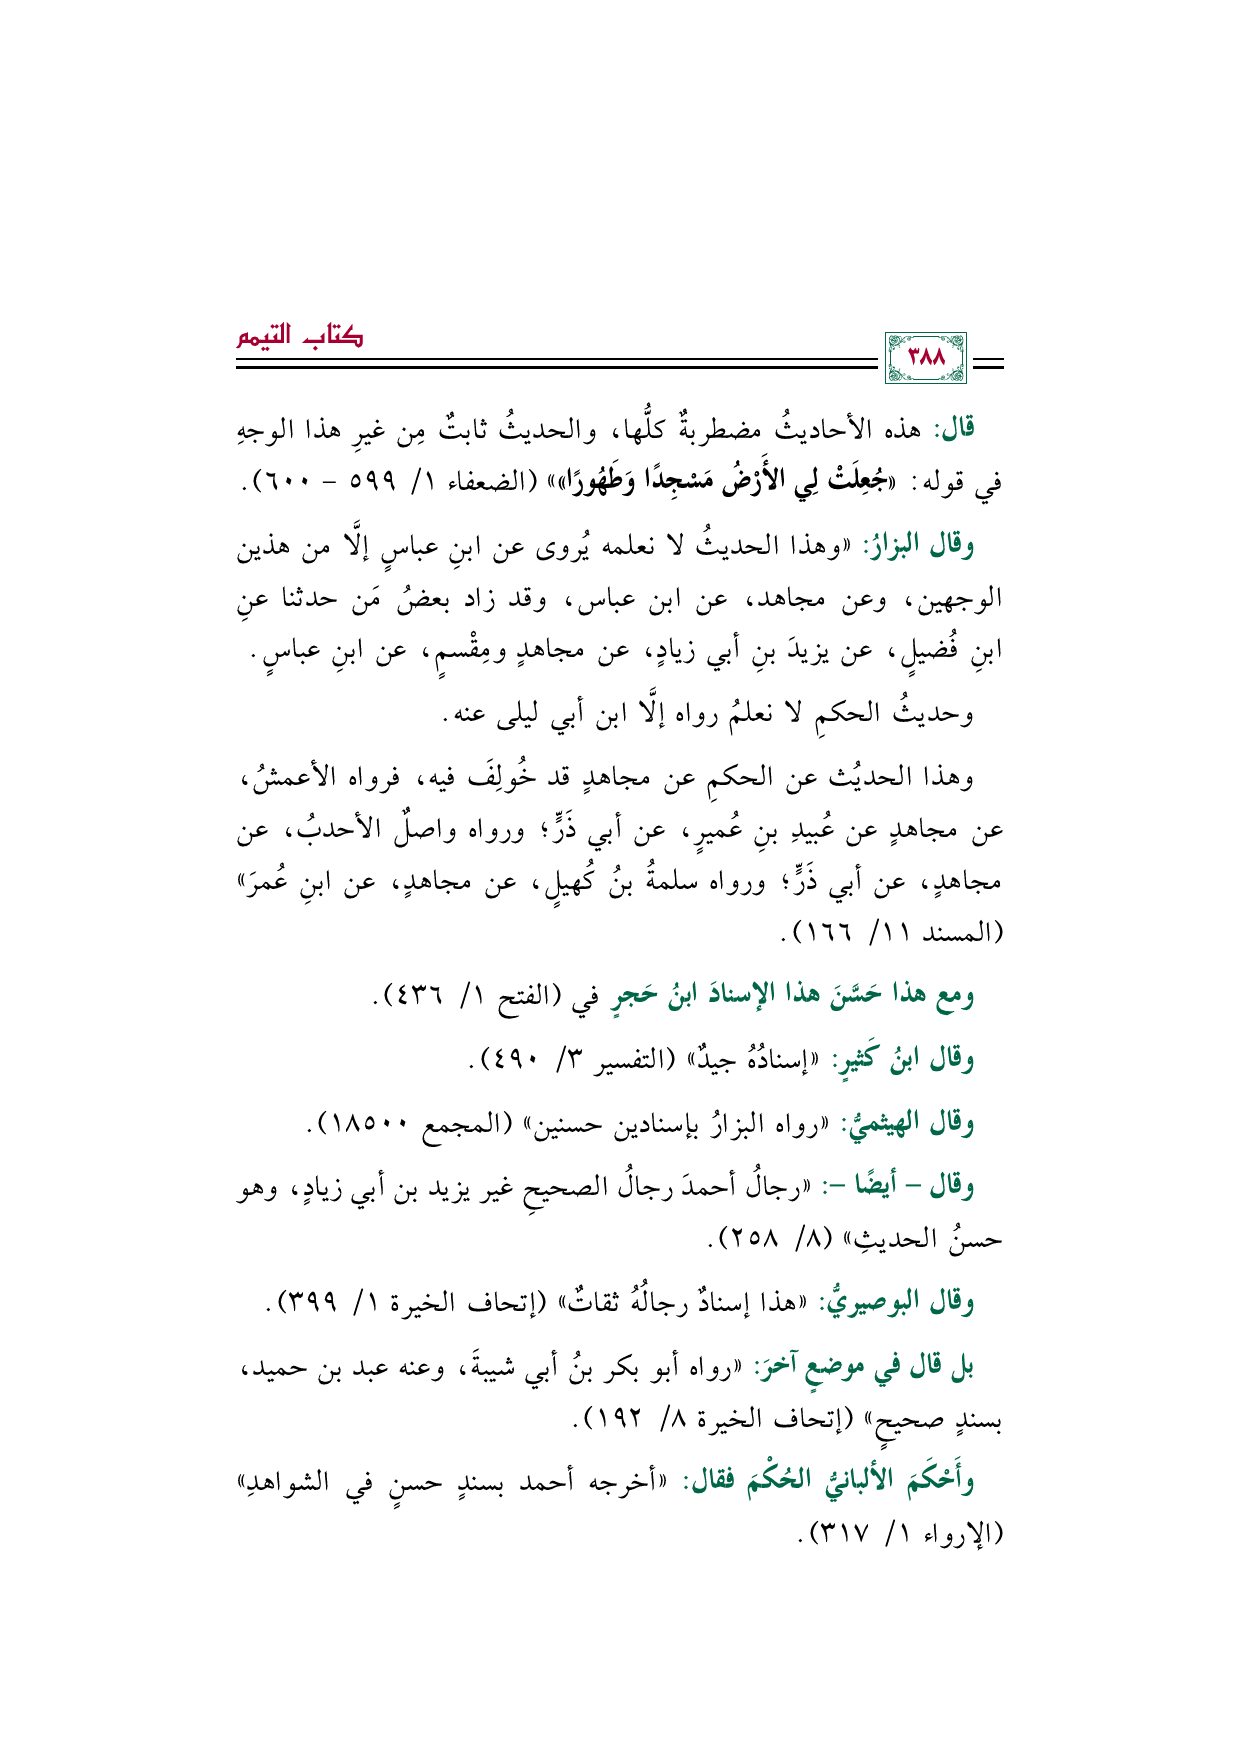 كتاب التيمم
٣٨٨
قال: هذه الأحاديثُ مضطربةٌ كلُّها، والحديثُ ثابتٌ مِن غيرِ هذا الوجهِ
في قوله: «جُعِلَتْ لِي الأَرْضُ مَسْجِدًا وَطَهُورًا»» (الضعفاء ١/ ٥٩٩ - ٦٠٠).
وقال البزارُ: «وهذا الحديثُ لا نعلمه يُروى عن ابنِ عباسٍ إلَّا من هذين
الوجهين، وعن مجاهد، عن ابن عباس، وقد زاد بعضُ مَن حدثنا عنِ
ابنِ فُضيلٍ، عن يزيدَ بنِ أبي زيادٍ، عن مجاهدٍ ومِقْسمٍ، عن ابنِ عباسٍ.
وحديثُ الحكمِ لا نعلمُ رواه إلَّا ابن أبي ليلى عنه.
وهذا الحديُث عن الحكمِ عن مجاهدٍ قد خُولِفَ فيه، فرواه الأعمشُ،
عن مجاهدٍ عن عُبيدِ بنِ عُميرٍ، عن أبي ذَرٍّ؛ ورواه واصلٌ الأحدبُ، عن
مجاهدٍ، عن أبي ذَرٍّ؛ ورواه سلمةُ بنُ كُهيلٍ، عن مجاهدٍ، عن ابنِ عُمرَ»
(المسند ١١/ ١٦٦).
ومع هذا حَسَّنَ هذا الإسنادَ ابنُ حَجرٍ في (الفتح ١/ ٤٣٦).
وقال ابنُ كَثيرٍ: «إسنادُهُ جيدٌ» (التفسير ٣/ ٤٩٠).
وقال الهيثميُّ: «رواه البزارُ بإسنادين حسنين» (المجمع ١٨٥٠٠).
وقال - أيضًا -: «رجالُ أحمدَ رجالُ الصحيحِ غير يزيد بن أبي زيادٍ، وهو
حسنُ الحديثِ» (٨/ ٢٥٨).
وقال البوصيريُّ: «هذا إسنادٌ رجالُهُ ثقاتٌ» (إتحاف الخيرة ١/ ٣٩٩).
بل قال في موضعٍ آخرَ: «رواه أبو بكر بنُ أبي شيبةَ، وعنه عبد بن حميد،
بسندٍ صحيحٍ» (إتحاف الخيرة ٨/ ١٩٢).
وأَحْكَمَ الألبانيُّ الحُكْمَ فقال: «أخرجه أحمد بسندٍ حسنٍ في الشواهدِ»
(الإرواء ١/ ٣١٧).